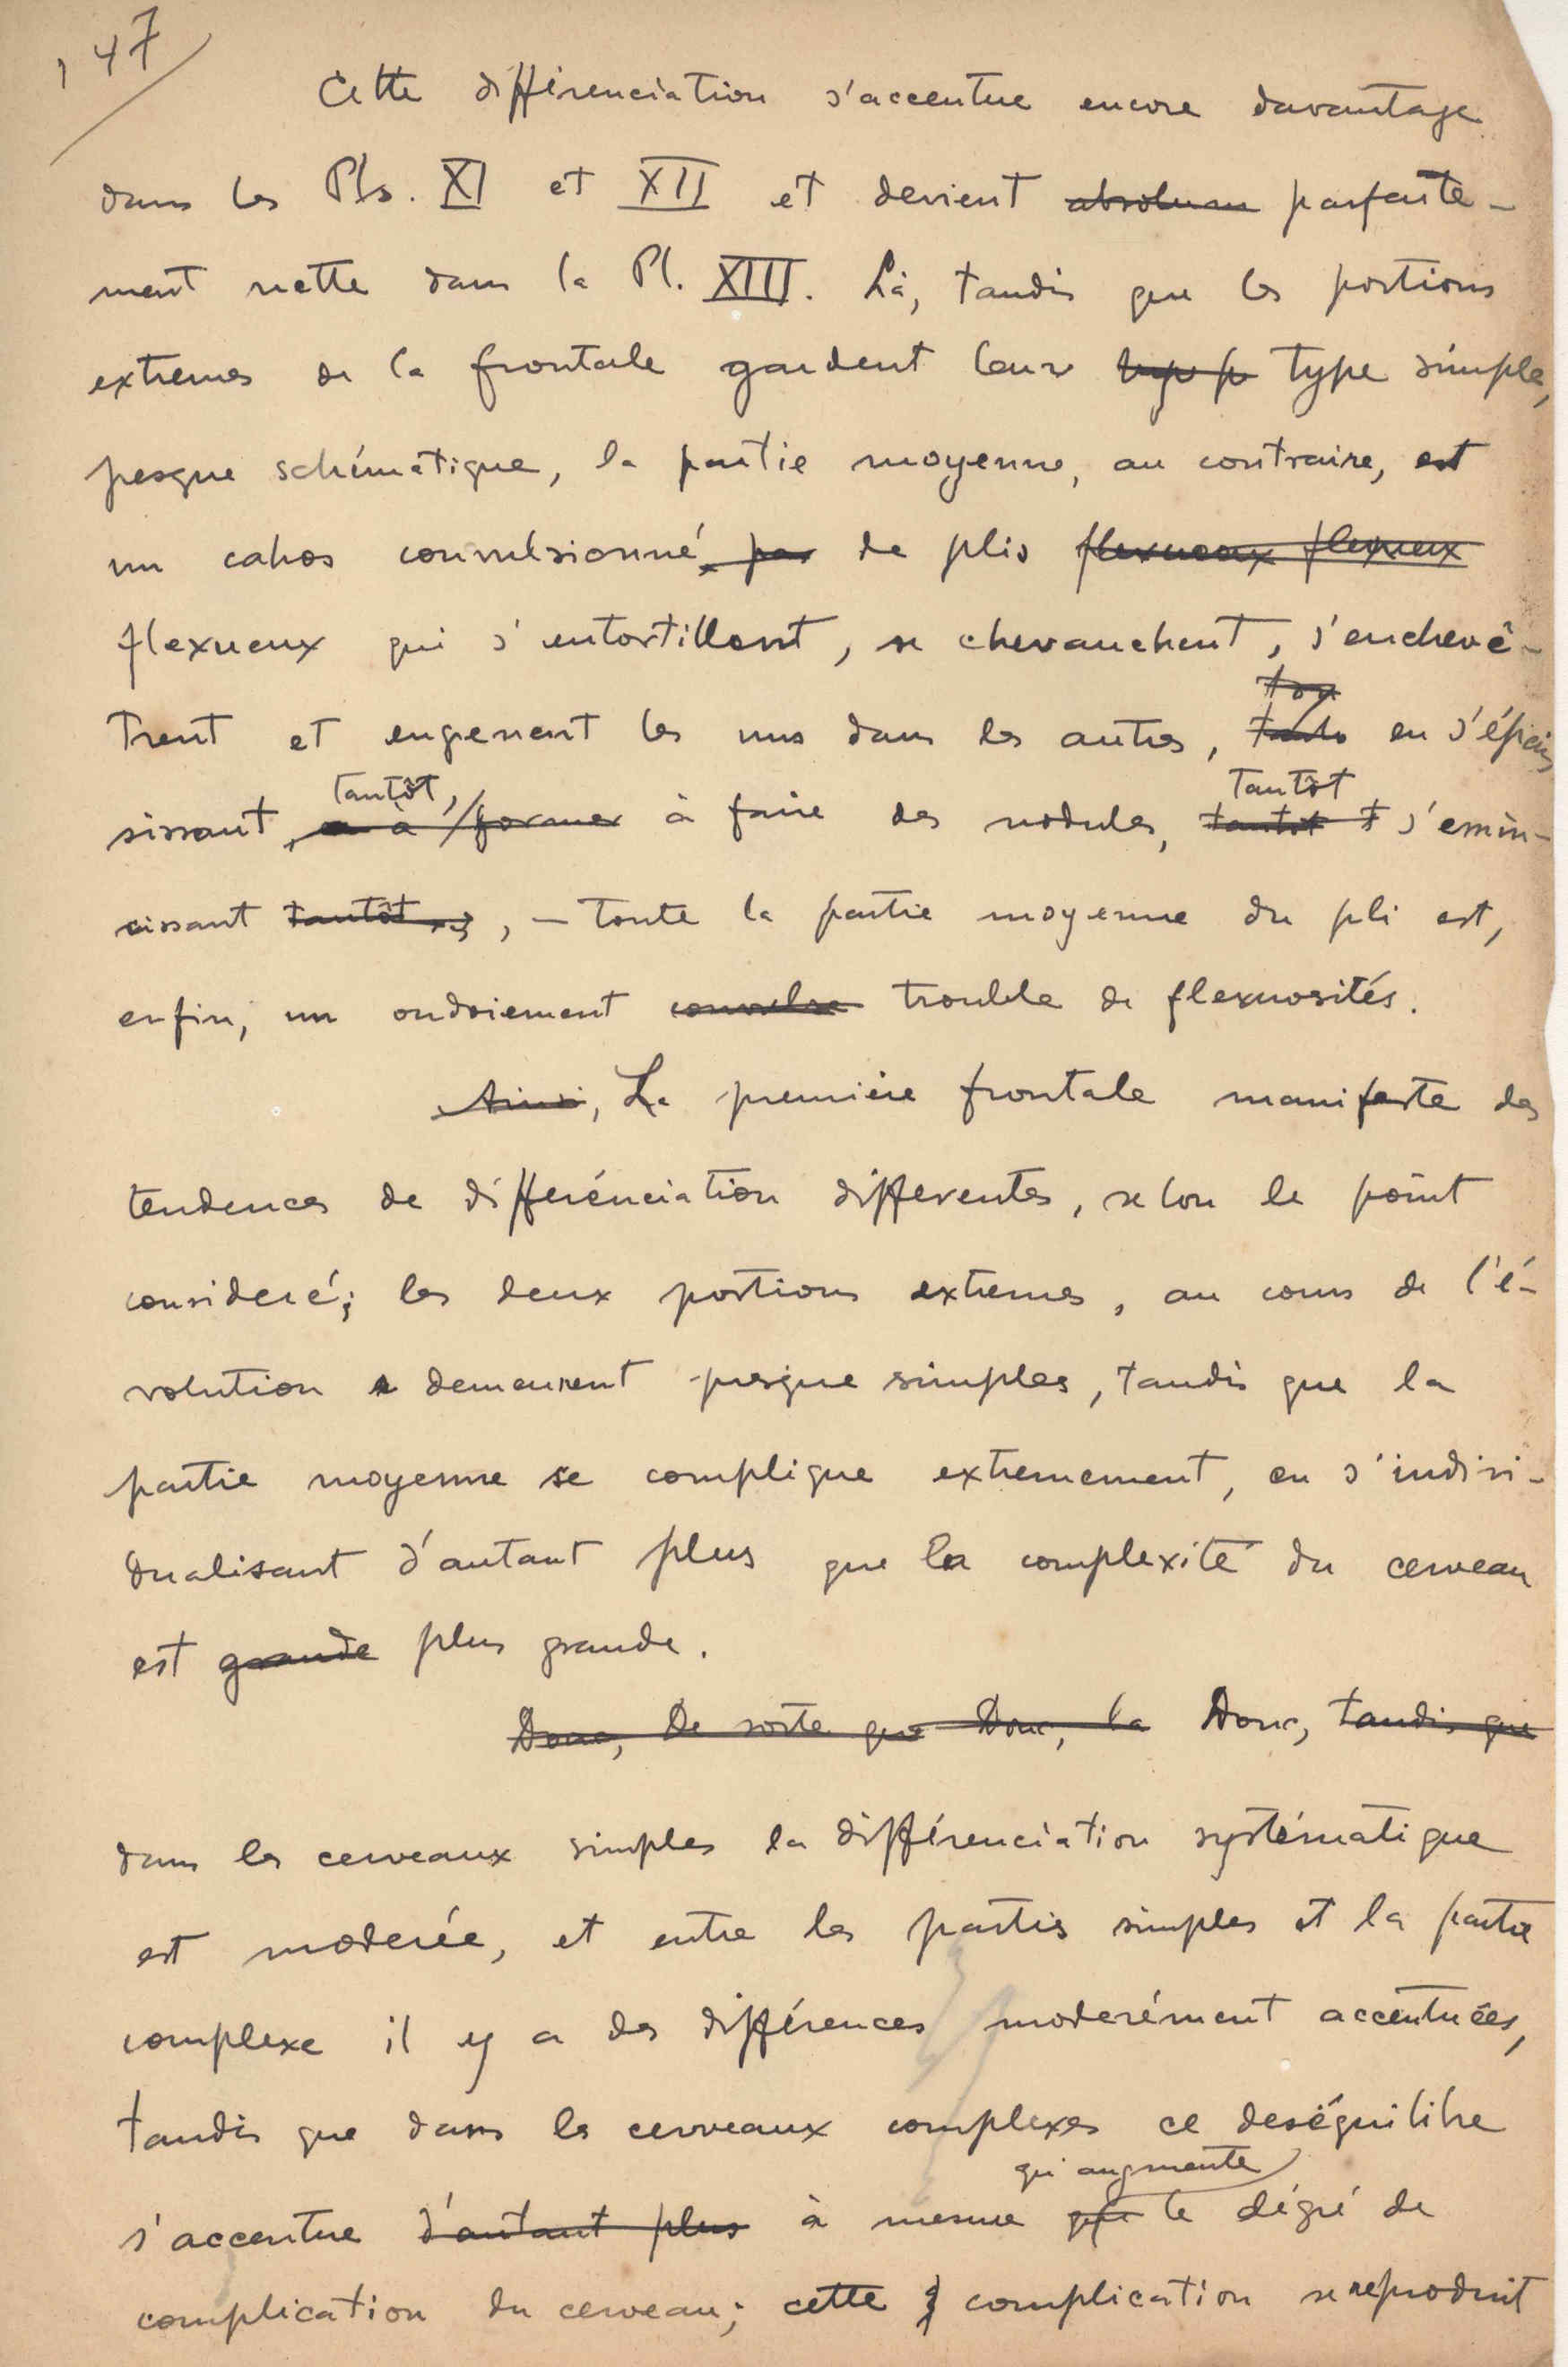 147
Cette différenciation s'accentue encore davantage
dans les Pls. XI et XII et devient absolum parfaite-
ment nette dans la Pl. XIII. Là, tandis que les portions
extremes de la frontale gardent leur type p type simple,
pesque schématique, la partie moyenne, au contraire, est
un cahos convulsionné, par de plis flexueux flexueux
flexueux qui s'entortillent, se chevauchent, s'enchevê-
trent et engrenent les uns dans les autres, en s'épais
sissant, tantôt, à former à faire des nodules, tantôt tantôt t s'emin-
cissant tantôt, – toute la partie moyenne du pli est,
enfin, un ondoiement convulse trouble de flexuosités.
Ainsi, La premiére frontale manifeste des
tendences de différénciation differentes, selon le point
consideré; les deux portions extremes, au cours de l'é-
volution demeurent presque simples, tandis que la
partie moyenne se complique extremement, en s'indivi-
dualisant d'autant plus que la complexité du cerveau
est grande plus grande.
Donc, De sorte que Donc, la Donc, tandis que
dans les cerveaux simples la différenciation systématique
est moderée, et entre les parties simples et la partie
complexe il y a des différences moderément accentuées,
tandis que dans les cerveaux complexes ce deséquilibre
qui augmente
s'accentue d'autant plus à mesure que le dégré de
complication du cerveau; cette complication se reproduit